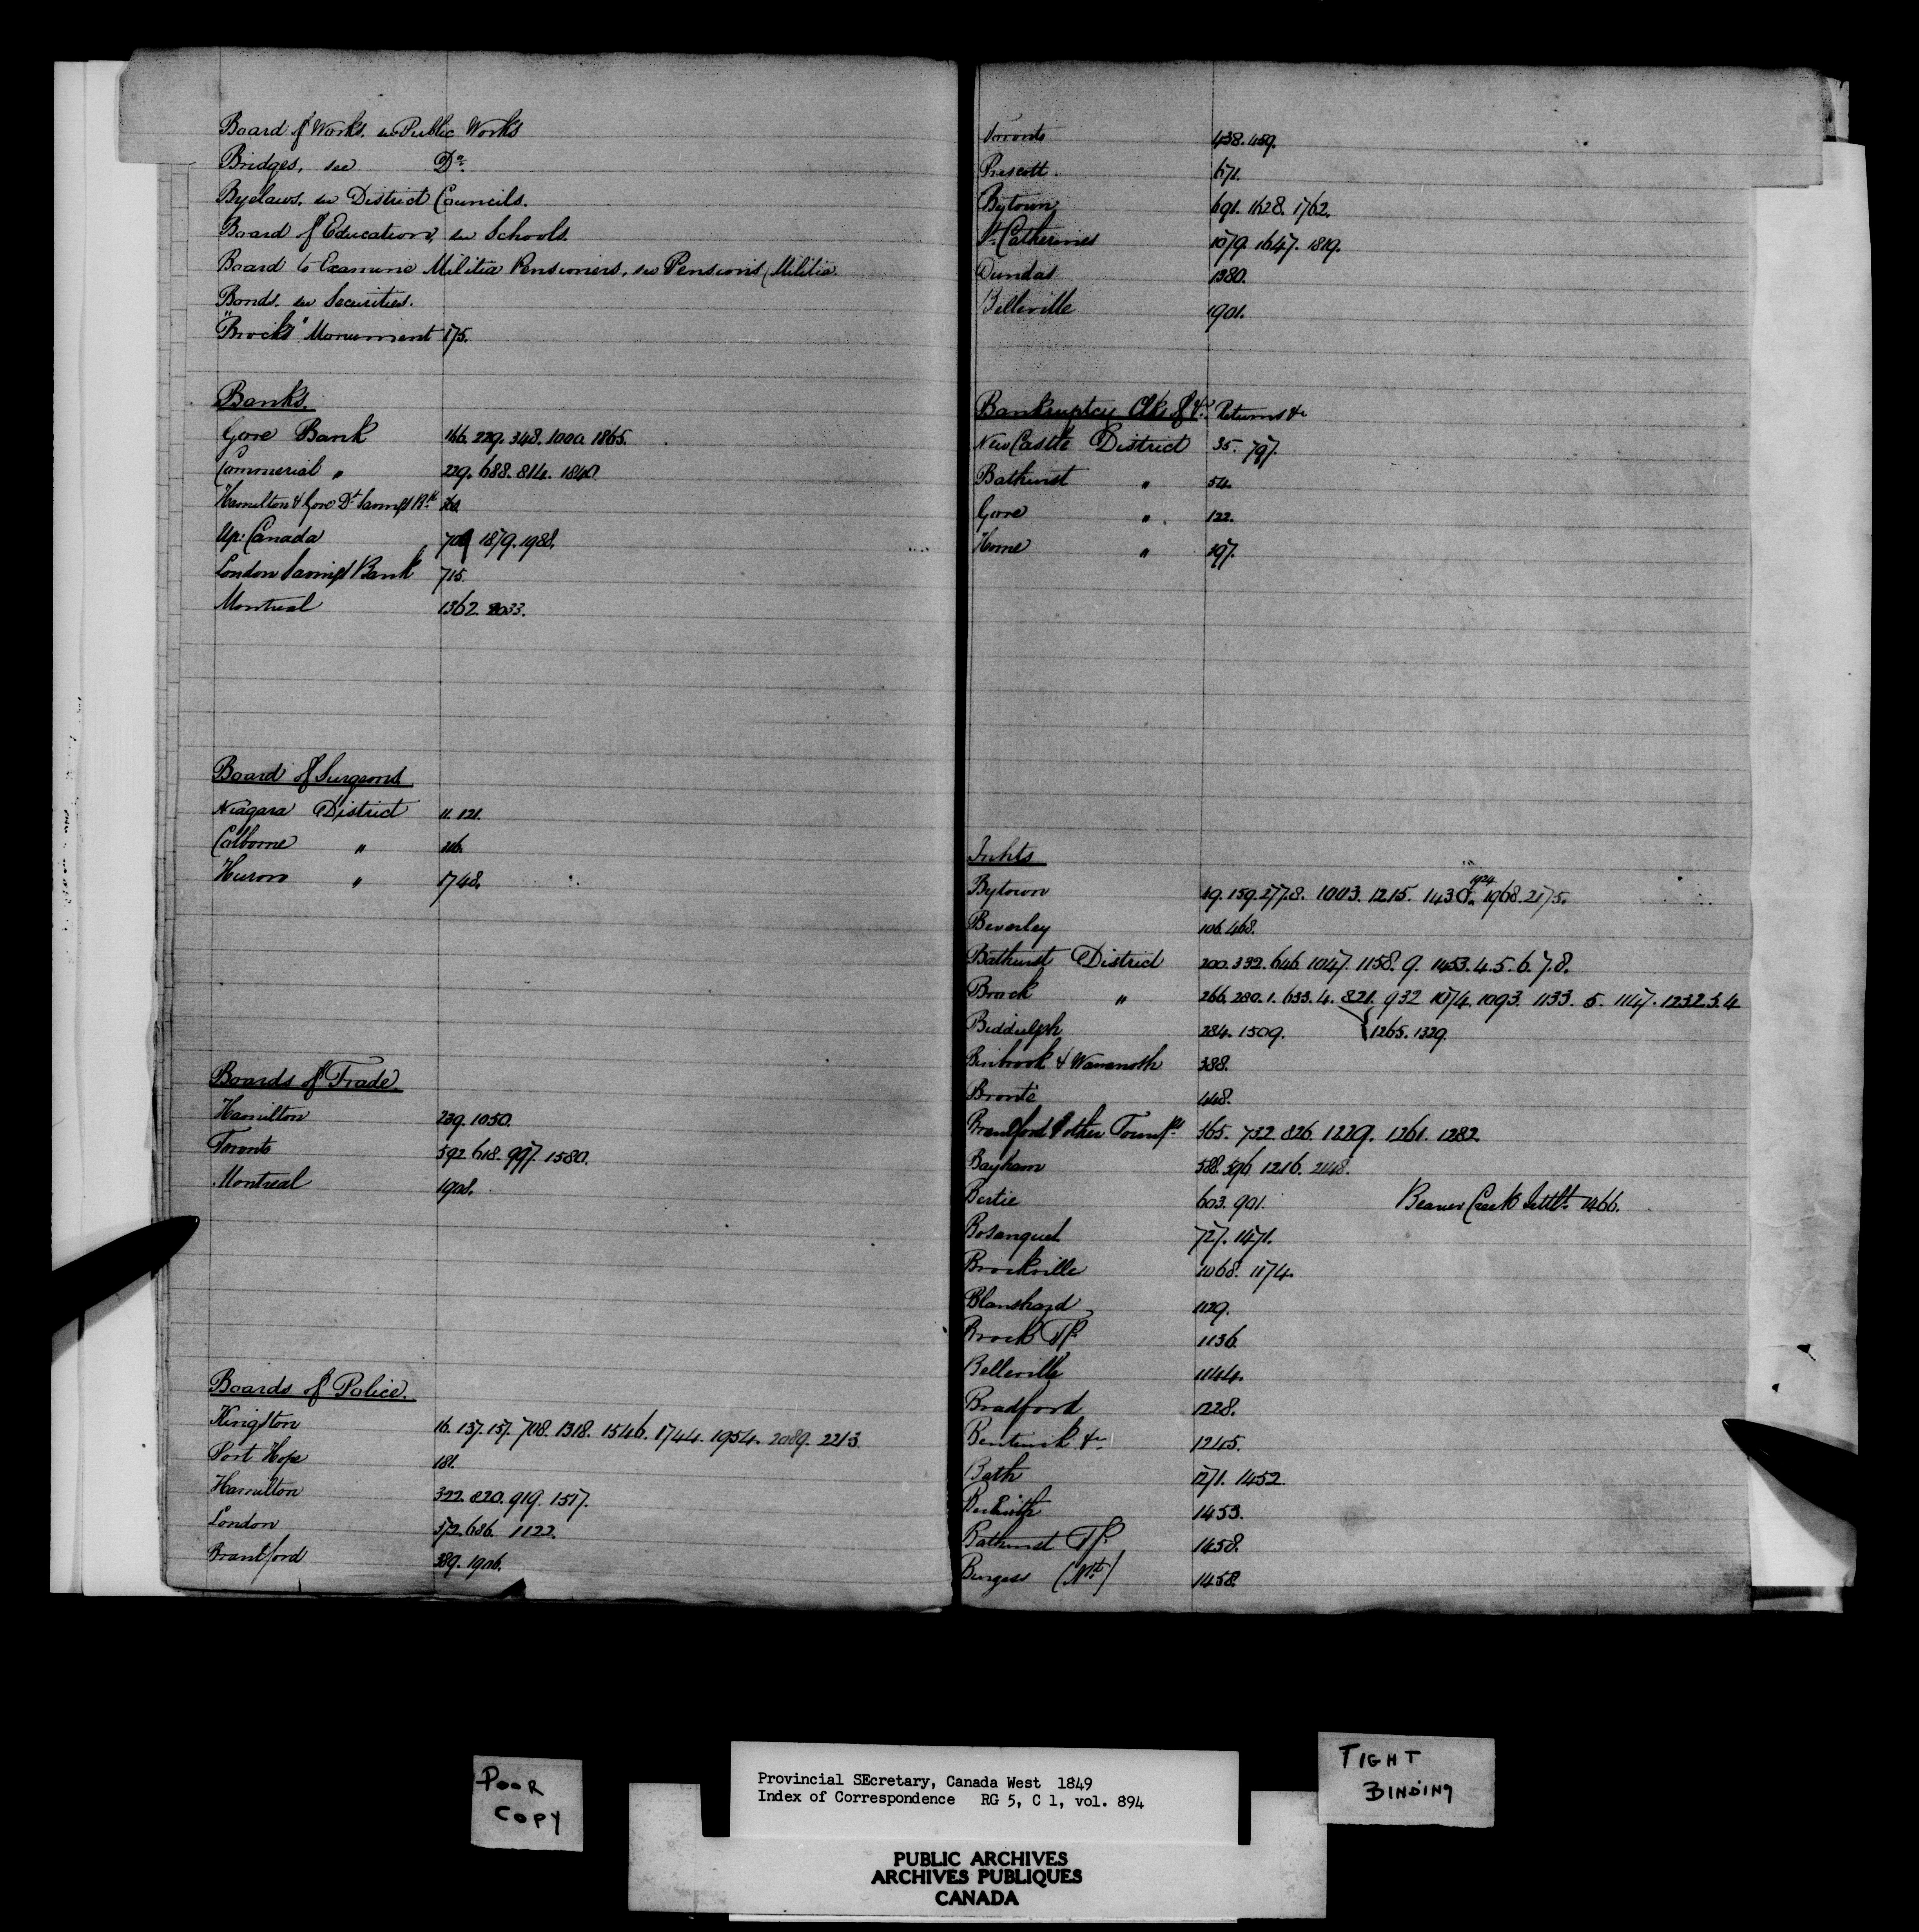 Board of Works. see Public Works
Bridges, see Do.
Byelaws, see District Councils.
Board of Education, see Schools.
Board to Examine Militia Pensioners, see Pensions, Militia.
Bonds. see Securities.
"Brock's" Monument 175.
Banks.
Gore Bank 166. 229. 348. 1000. 1865.
Commercial " 229. 688. 814. 1840.
Hamilton & Gore Dt. Savings Bk.
Up: Canada 709 1879. 1988.
London Savings Bank 715.
Montreal 1362. 2033.
Board of Surgeons
Niagara District 11. 121.
Colborne " 206.
Huron " 1748.
Boards of Trade.
Hamilton 239. 1050.
Toronto 592. 618. 997. 1580.
Montreal 1908.
Boards of Police.
Kingston 16. 137. 157. 708. 1318. 1546. 1744. 1954. 2089. 2213.
Port Hope 181.
Hamilton 322. 820. 919. 1517.
London 372. 636. 1122.
Brantford 389. 1906.
Toronto 438. 459.
Prescott. 671.
Bytown 691. 1628. 1762.
St. Catherines 1079. 1647. 1819.
Dundas 1380.
Belleville 1901.
Bankruptcy Clks of &c. Returns &c
NewCastle District 35. 797.
Bathurst " 54.
Gore " 122.
Home " 197.
Inhts
Bytown 19. 159. 277.8. 1003. 1215. 1430. 1924 1968. 2175.
Beverley 106. 468.
Bathurst District 200. 332. 646. 1047. 1158. 9. 1453. 4. 5. 6. 7. 8.
Brock " 266. 280. 1. 633. 4. 821. 932 1074. 1093. 1133. 5. 1147. 1232. 3. 4
Biddulph 284. 1509. {1265. 1329.
Binbrook & Wawanosh 388.
Bronté 448.
Brantford & other Townsps. 565. 732. 826. 1229. 1261. 1282.
Bayham 588. 596. 1216. 2148.
Bertie 603. 901. Beaver Creek Settlt. 1466.
Bosanquet 727. 1471.
Brockville 1068. 1174.
Blanshard 1129.
Brock Tp. 1136.
Belleville 1144.
Bradford 1228.
Bentinck &c. 1245.
Bath 1271. 1452.
Beckwith 1453.
Bathurst Tp. 1458.
Burgess (Nth) 1458.
POOR
COPY
Provincial SEcretary, Canada West 1849
Index of Correspondence RG 5, C 1, vol. 894
PUBLIC ARCHIVES
ARCHIVES PUBLIQUES
CANADA
TIGHT
BINDING